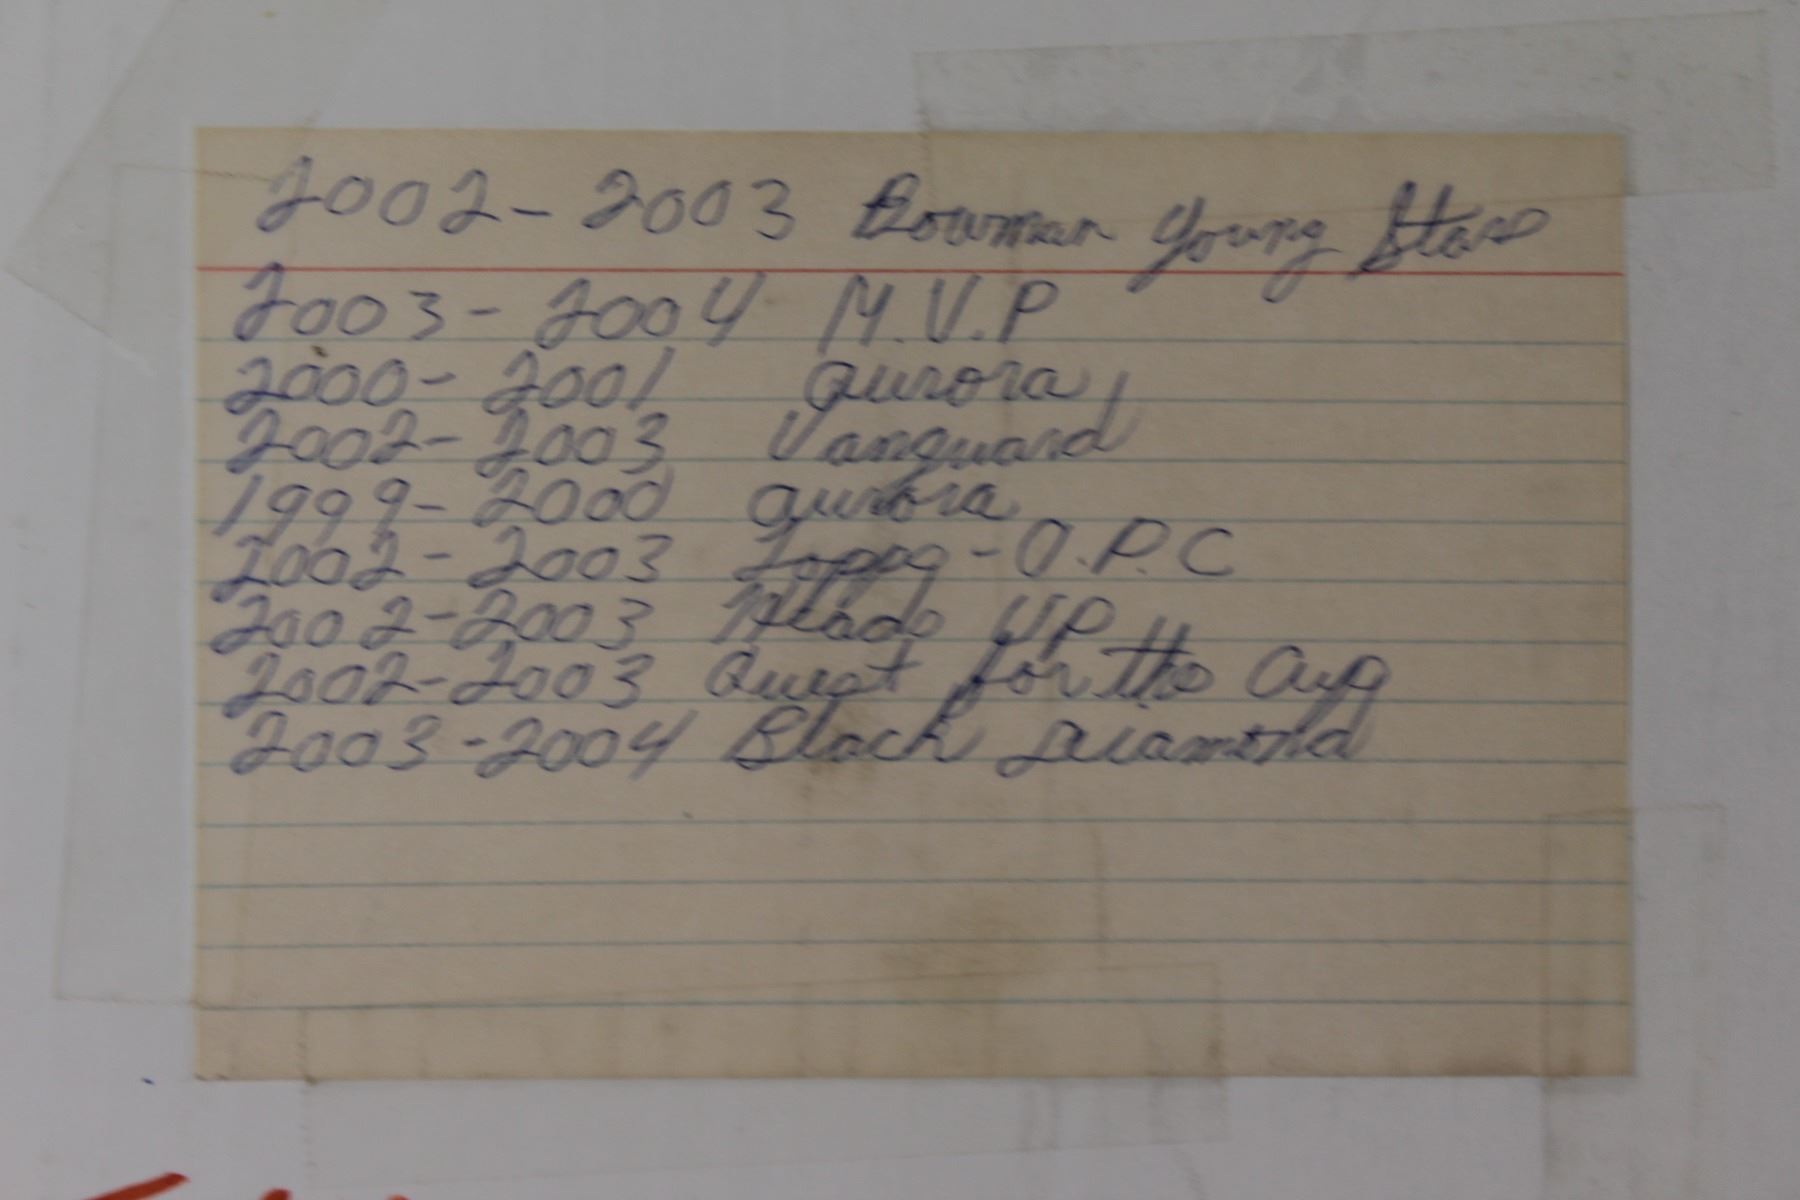 2002-2003 Bowman Young Stars
2003-2004 M.V.P
2000-2001 aurora
2002-2003 Vanguard
1999-2000 aurora
2002-2003 Topps-O.P.C
2002-2003 Heads UP
2002-2003 Quest for the Cup
2003-2004 Black Diamond